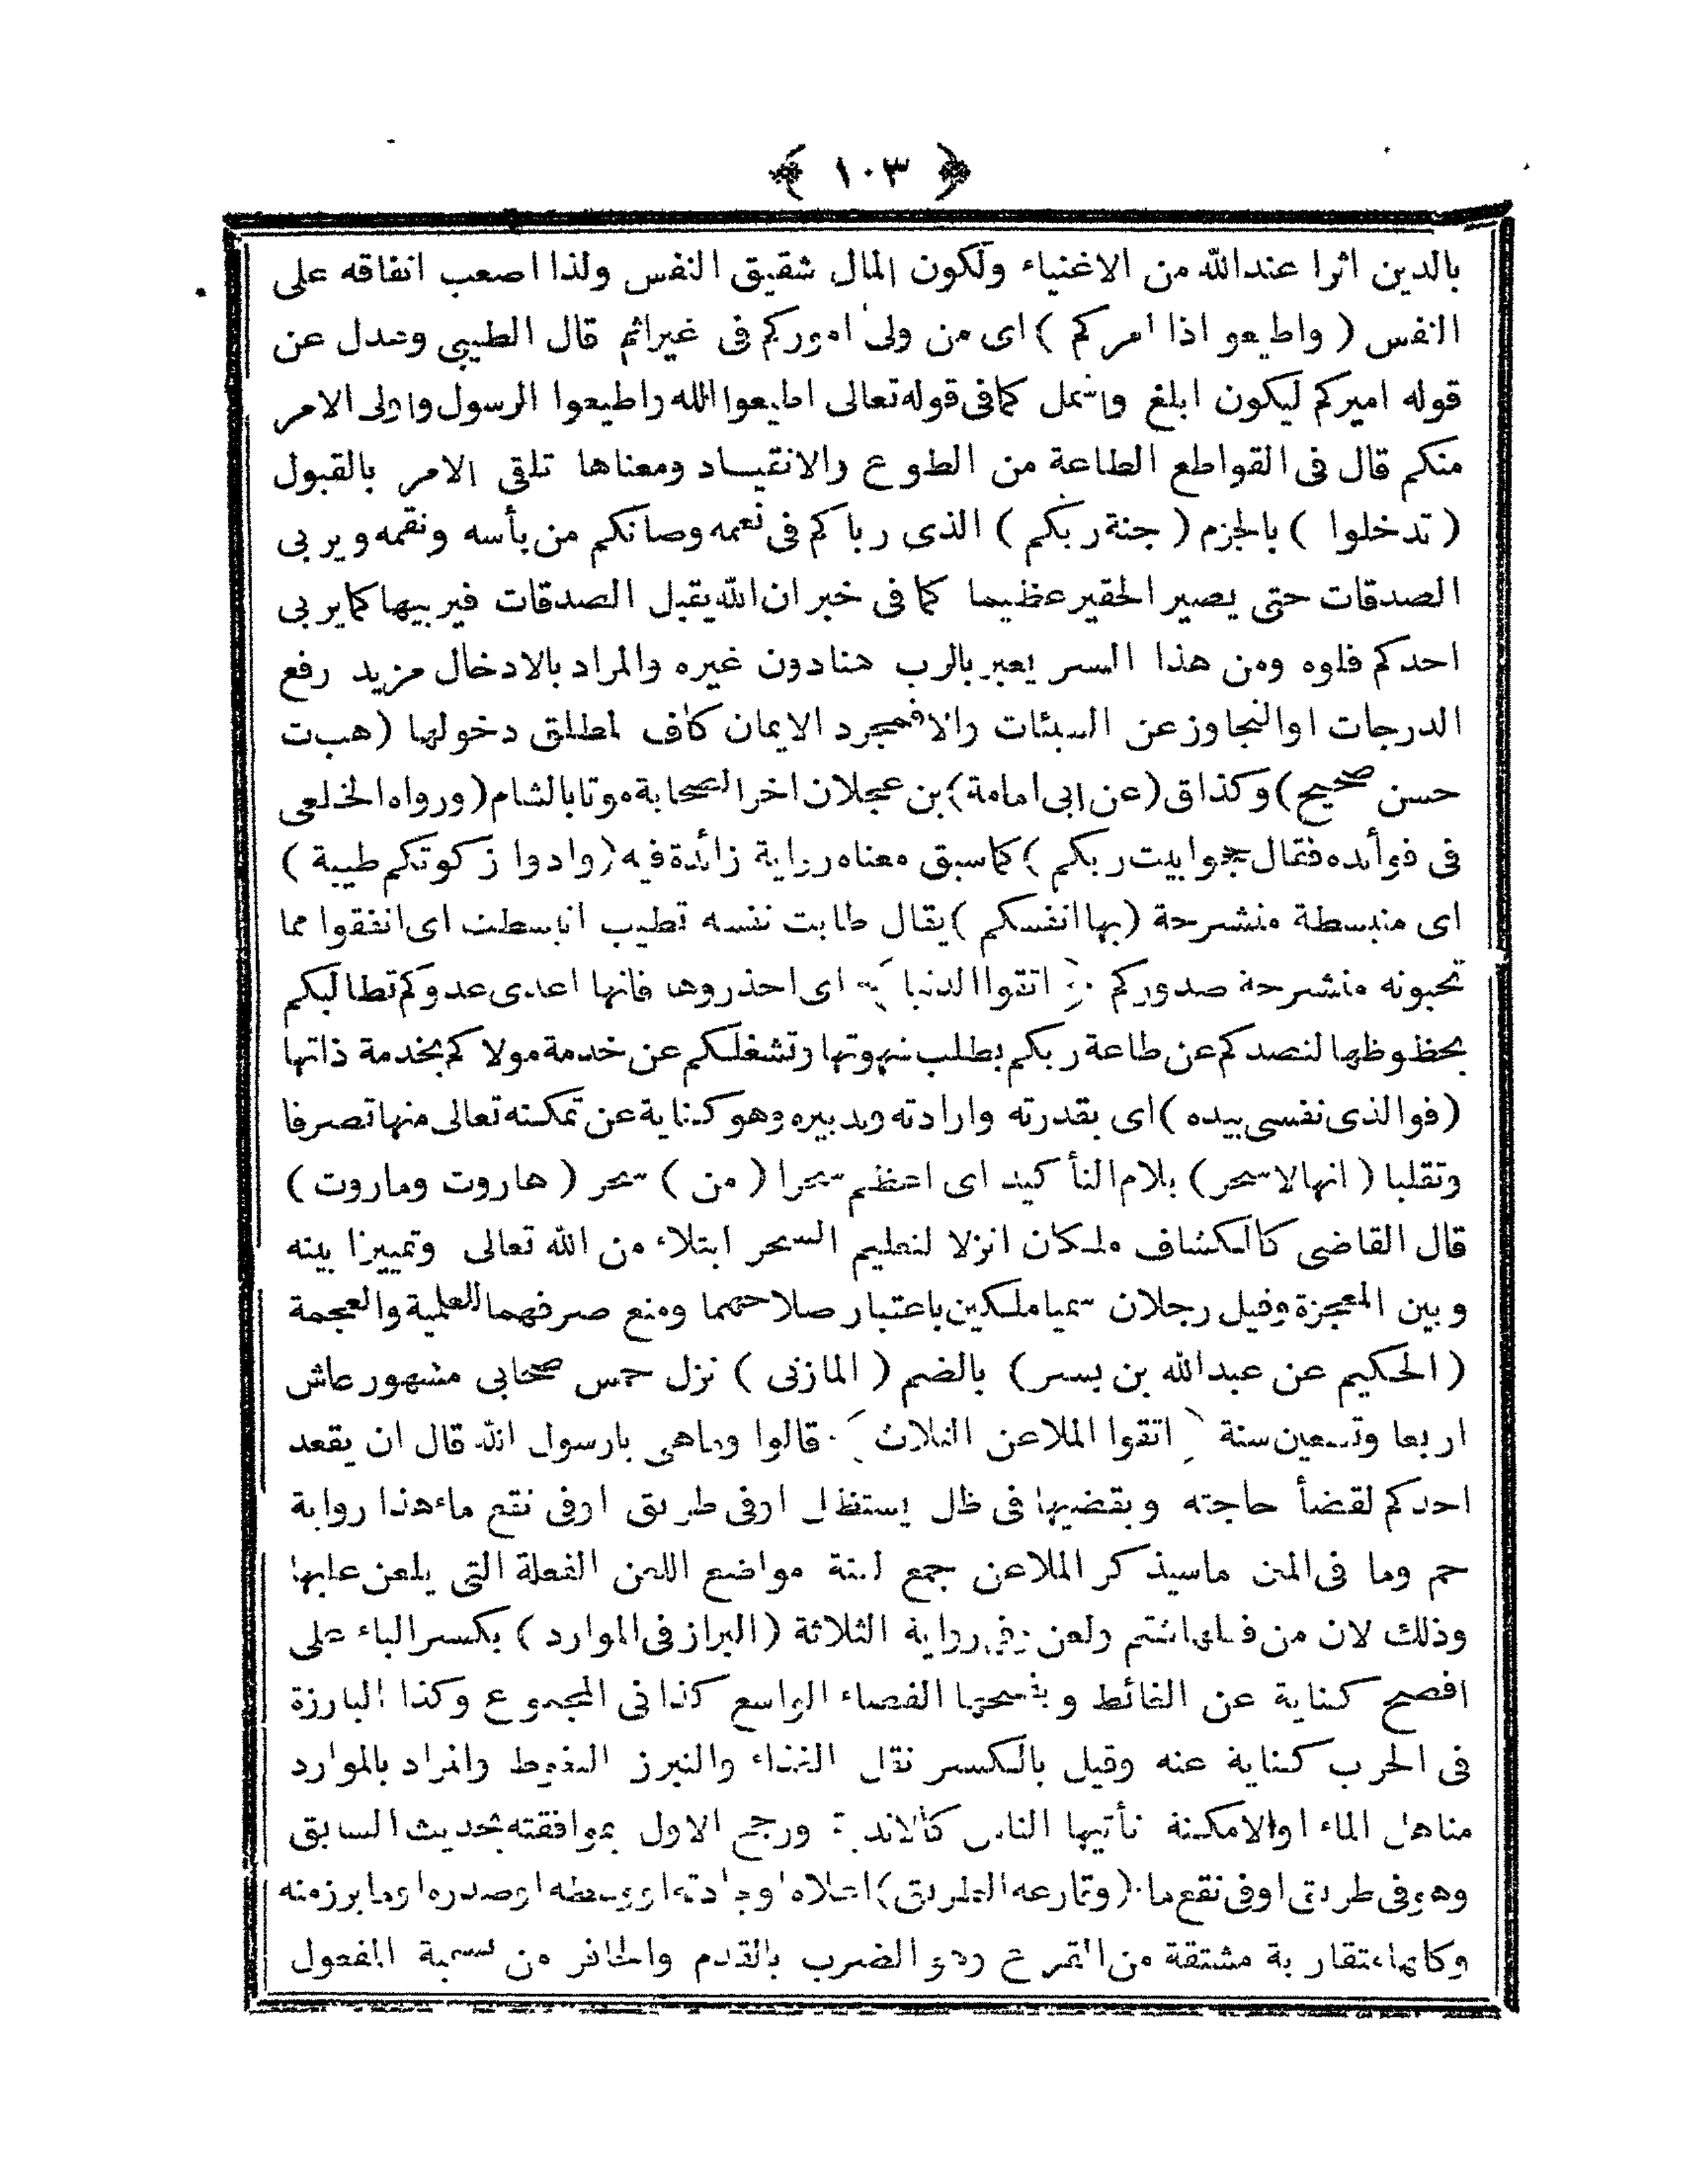 ﴿ ١٠٣ ﴾
بالدين اثرا عندالله من الاغنياء ولكون المال شقيق النفس ولذا اصعب انفاقه على
النفس ( واطيعو اذا امركم ) اى من ولى اموركم فى غيراثم قال الطيبي وعدل عن
قوله اميركم ليكون ابلغ واشمل كمافى قوله تعالى اطيعوا الله واطيعوا الرسول واولى الامر
منكم قال فى القواطع الطاعة من الطوع والانقياد ومعناها تلقى الامر بالقبول
( تدخلوا ) بالجزم ( جنة ربكم ) الذى رباكم فى نعمه وصانكم من بأسه ونقمه ويربى
الصدقات حتى يصير الحقير عظيما كما فى خبر ان الله يقبل الصدقات فيربيها كمايربى
احدكم فلوه ومن هذا السر يعبر بالرب هنا دون غيره والمراد بالادخال مزيد رفع
الدرجات اوالتجاوز عن السيئات والا فمجرد الايمان كاف لمطلق دخولها (هب ت
حسن صحيح) وكذا ق (عن ابى امامة) بن عجلان اخر الصحابة موتا بالشام (ورواه الخلعى
فى فوأئده فقال حجوا بيت ربكم ) كماسبق معناه رواية زائدة فيه (وادوا زكوتكم طيبة )
اى منبسطة منشرحة (بها انفسكم ) يقال طابت نفسه تطيب انبسطت اى انفقوا مما
تحبونه منشرحة صدوركم ﴿ اتقوا الدنيا ﴾ اى احذروها فانها اعدى عدوكم تطالبكم
بحظوظها لتصدكم عن طاعة ربكم بطلب شهوتها وتشغلكم عن خدمة مولاكم بخدمة ذاتها
(فوالذى نفسى بيده ) اى بقدرته وارادته وتدبيره وهو كناية عن تمكنه تعالى منها تصرفا
وتقلبا ( انها لاسحر ) بلام التأكيد اى اعظم سحرا ( من ) سحر ( هاروت وماروت )
قال القاضى كالكشاف ملكان انزلا لتعليم السحر ابتلاء من الله تعالى وتمييزا بينه
وبين المعجزة وقيل رجلان سميا ملكين باعتبار صلاحهما ومنع صرفهما للعلمية والعجمة
( الحكيم عن عبدالله بن بسر ) بالضم ( المازنى ) نزل حمص صحابى مشهور عاش
اربعا وتسعين سنة ﴿ اتقوا الملاعن الثلاث ﴾ قالوا وماهى يارسول الله قال ان يقعد
احدكم لقضأ حاجته ويقضيها فى ظل يستظل اوفى طريق اوفى نقع ماء هذا رواية
حم وما فى المتن ماسيذكر الملاعن جمع لعنة مواضع اللعن الفعلة التى يلعن عليها
وذلك لان من فعلها شتم ولعن وفى رواية الثلاثة (البراز فى الموارد ) بكسر الباء على
افصح كناية عن الغائط وبفتحها الفضاء الواسع كذا فى المجموع وكذا البارزة
فى الحرب كناية عنه وقيل بالكسر نقل الغذاء والتبرز التغوط والمراد بالموارد
مناهل الماء اوالامكنة تأتيها الناس كالاندية ورجح الاول بموافقته بحديث السابق
وهوفى طريق اوفى نقع ماء (وقارعه الطريق) اعلاه اوجادته اووسطه اوصدره اومابرزمنه
وكلها متقاربة مشتقة من القرع وهو الضرب بالقدم والحافر من تسمية المفعول